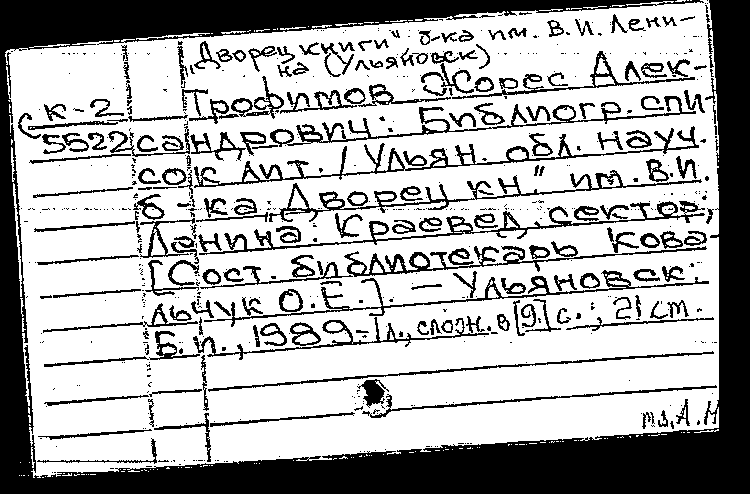 „Дворец книги" б-ка им. В.И. Лени-
на (Ульяновск)
К-2
5522
Трофимов Жорес Алек-
сандрович: Библиогр. спи-
сок лит. / Ульян. обл. науч.
б-ка „Дворец кн." им. В.И.
Ленина. Краевед. сектор;
[Сост. библиотекарь Кова-
льчук О.Е.]. — Ульяновск:
Б.и., 1989.- 1 л., слож. в [9] с.; 21 см.